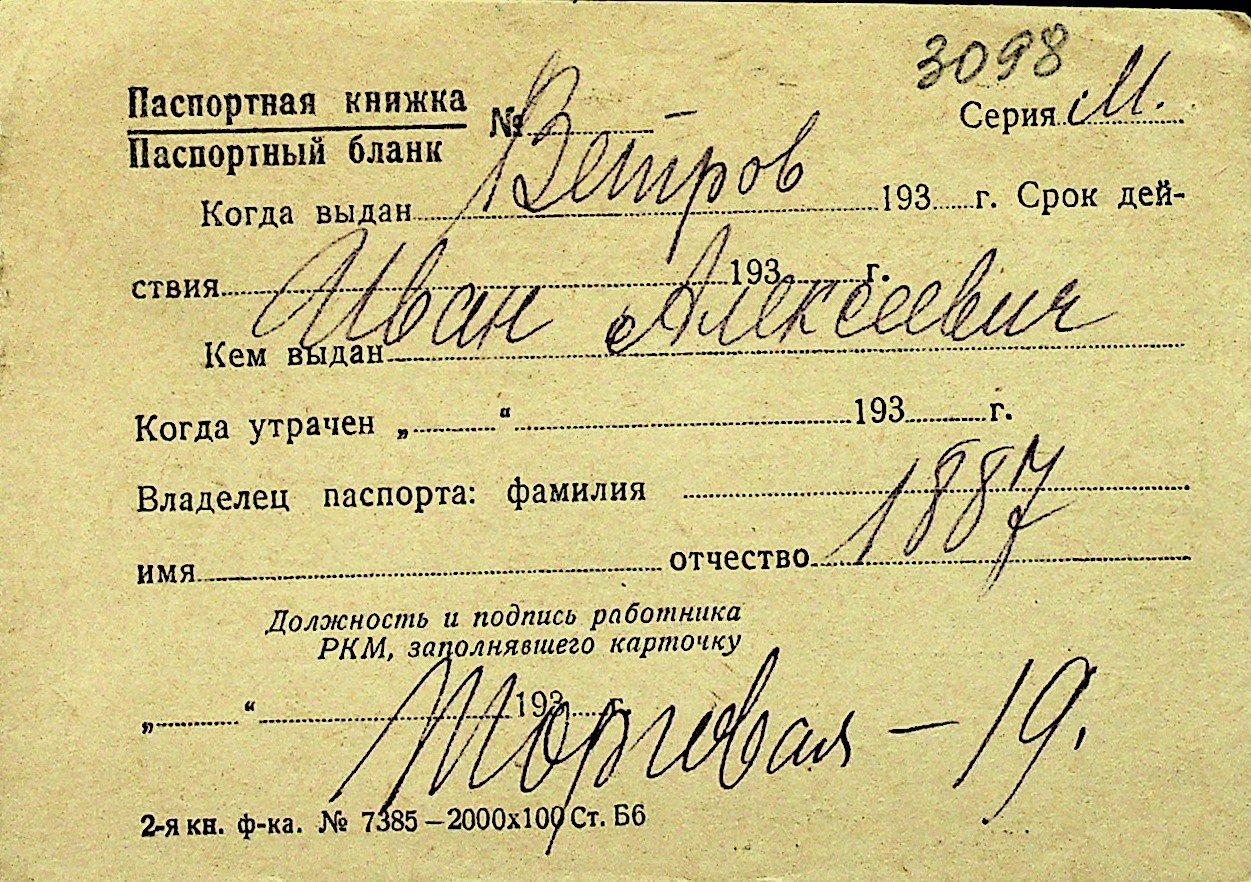 3098
Паспортная книжка
Паспортный бланк
№ Серия М.
Ветров
Когда выдан 193 г. Срок дей-
ствия 193 г.
Иван Алексеевич
Кем выдан
Когда утрачен „ “ 193 г.
Владелец паспорта: фамилия
1887
имя отчество
Должность и подпись работника
РКМ, заполнявшего карточку
„ “ 193 г.
Торговая – 19.
2-я кн. ф-ка. № 7385–2000х100 Ст. Б6